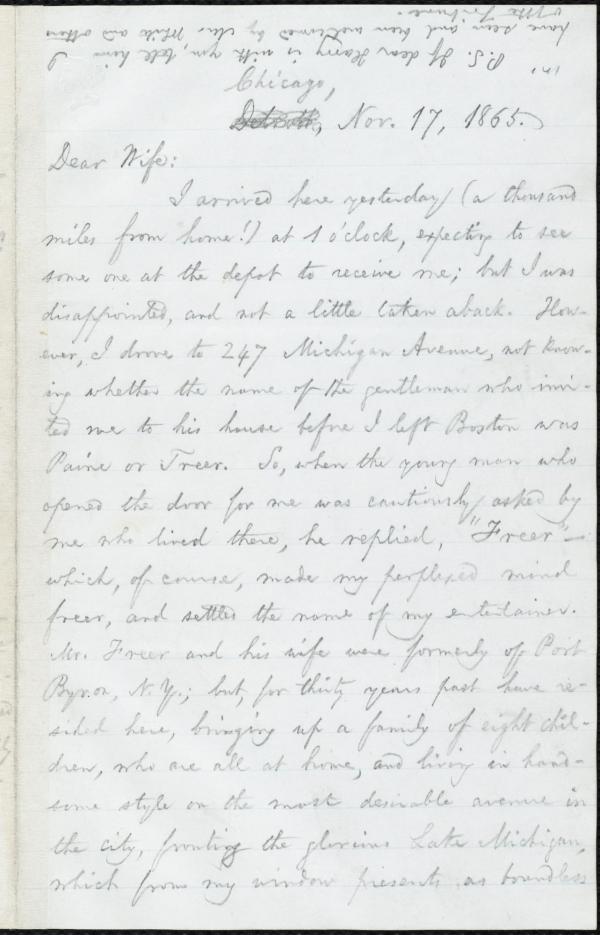 P.S. If dear Harry is with you, tell him I
have seen and been welcomed by Mr. White and others
of the Tribune.
Chicago,
Detroit, Nov. 17, 1865.
Dear Wife:
I arrived here yesterday (a thousand
miles from home!) at 1 o'clock, expecting to see
some one at the depot to receive me; but I was
disappointed, and not a little taken aback. How-
ever, I drove to 247 Michigan Avenue, not know-
ing whether the name of the gentleman who invi-
ted me to his house before I left Boston was
Paine or Freer. So, when the young man who
opened the door for me was cautiously asked by
me who lived there, he replied, "Freer"—
which, of course, made my perplexed mind
freer, and settled the name of my entertainer.
Mr. Freer and his wife were formerly of Port
Byron, N.Y.; but, for thirty years past have re-
sided here, bringing up a family of eight chil-
dren, who are all at home, and living in hand-
some style on the most desirable avenue in
the city, fronting the glorious Lake Michigan,
which from my window presents as boundless